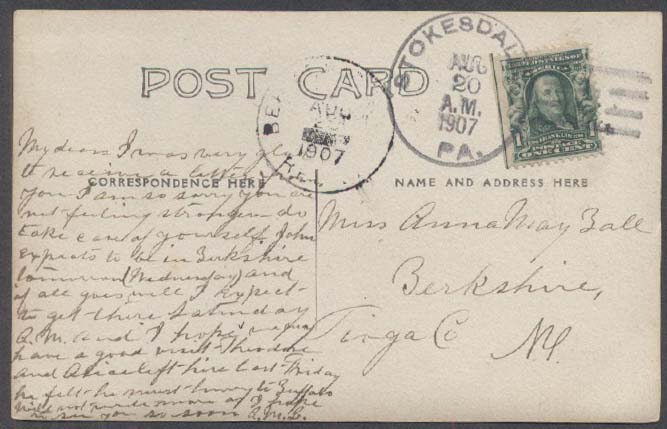 POST CARD
STOKESDAL
AUG
20
A.M.
1907
PA.
BE
AUG
1907
REC
UNITED STATES OF AMERICA
FRANKLIN
POSTAGE
ONE CENT
CORRESPONDENCE HERE
NAME AND ADDRESS HERE
My dear I was very glad
to receive a letter
you I am so sorry you are
not feeling stronger do
take care of yourself. John
expects to be in Berkshire
tomorrow (Wednesday) and
if all goes well I expect
to get there Saturday
A.M. and I hope we
have a good visit Theodore
and left here last Friday
he felt he must hurry to Buffalo
Will not write more as I hope
to see you so soon
Miss Anna May Ball
Berkshire,
Tioga Co
N.Y.